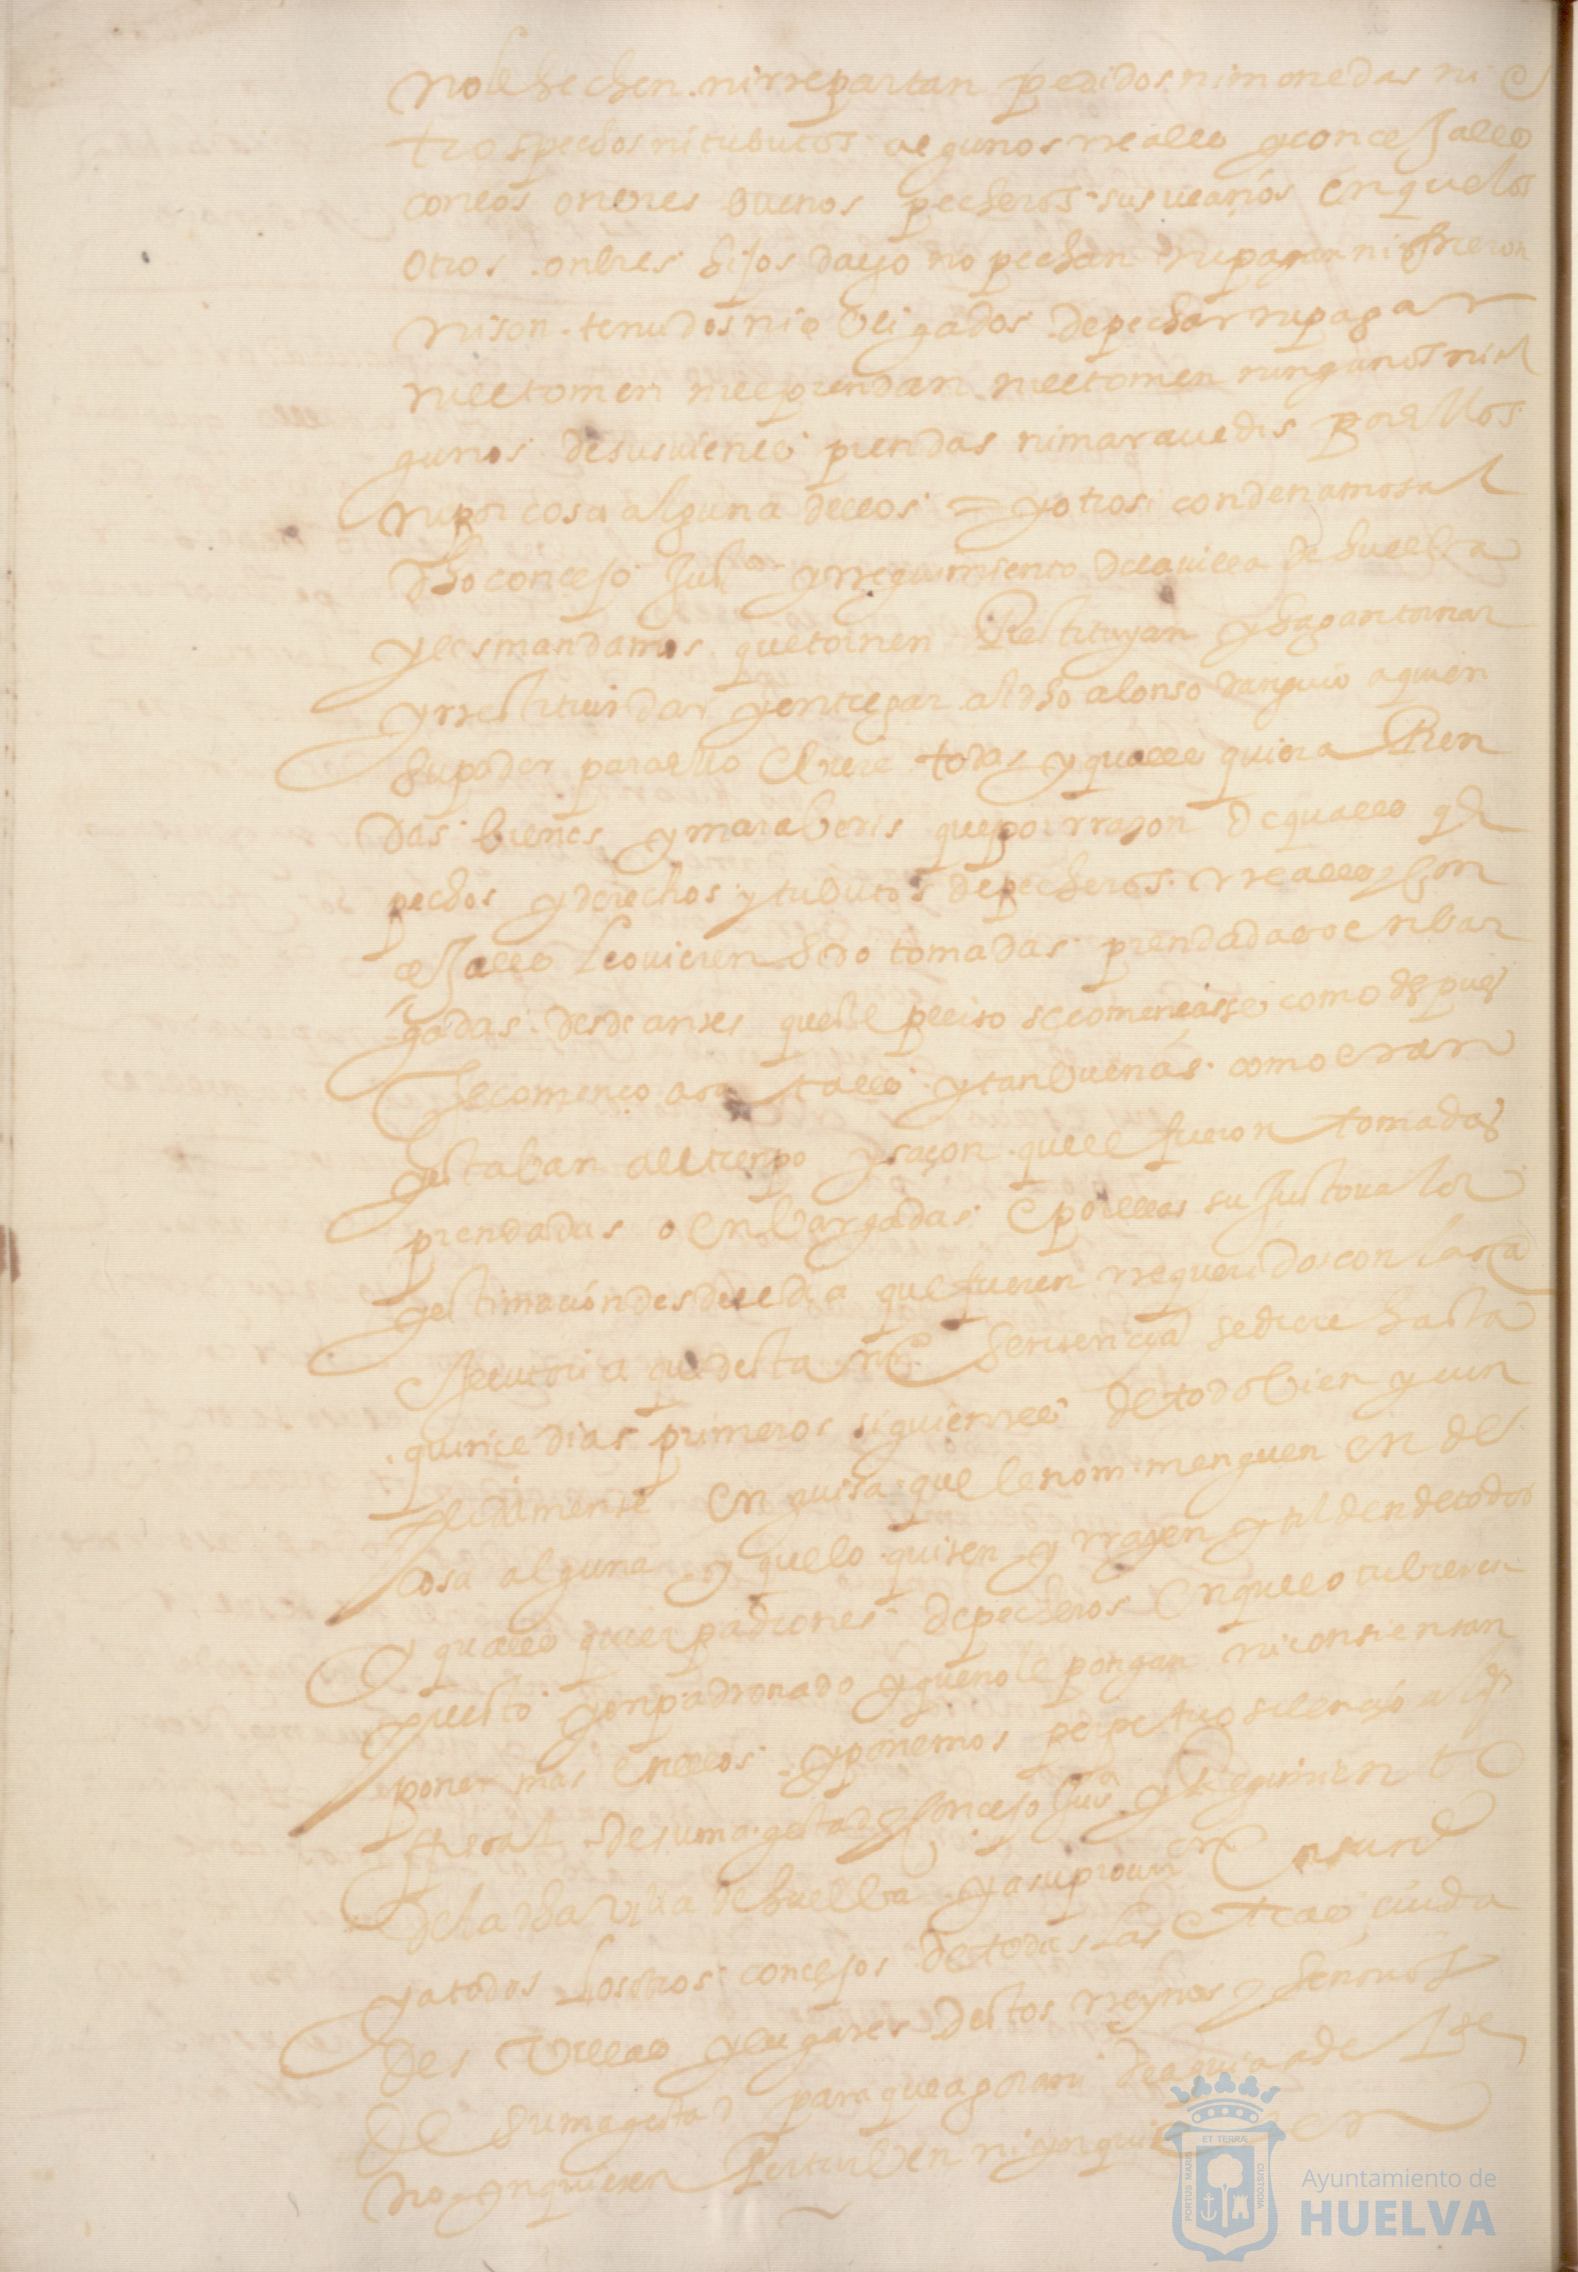 no le hechen ni rrepartan pedidos ni monedas ni o
tros pechos ni tributos algunos rreales y concejales
con los onbres buenos pecheros sus veçinos en que los
otros onbres hijos dalgo no pechan ni pagan ni fueron
ni son tenudos ni obligados de pechar ni pagar
ni le tomen ni le prendan ni le tomen ningunos ni al
gunos de sus vienes prendas ni maravedis por ellos
ni por cosa alguna dellos = y otrosi condenamos al
dho concejo Justª y rregimiento de la villa de huelba
y les mandamos que tornen Restituyan y hagan tornar
y rrestituir dar y entregar al dho alonso danguio a quien
su poder para ello obiere todas y quales quiera Pren
das bienes y maraberis que por rrazon de quales qr
pechos y derechos y tributos de pecheros rreales y con
cejales le ovieren sido tomadas prendadas o enbar
gadas desde antes queste pleito se començasse como despues
se començo a sentales y tan buenas como eran
y estaban al tienpo y saçon que le fueron tomadas
prendadas o enbargadas e por ellas su Justo valor
y estimaçion desde el dia que fueren rrequeridos con la ca
executoria que desta nrª Sentencia se diere hasta
quince dias primeros siguientes de todo bien y cun
plidamente en guisa que le nom menguen en de
cosa alguna y que lo quiten y rrayen y tilden de todos
y quales quier padrones de pecheros en que le otubieren
puesto y enpadronado y que no le pongan ni consientan
poner mas en ellos y ponemos perpetuo silençio al
fiscal de su magestad y conçejo Justª y Regimiento
de la dha villa de huelba y a su procurador en su nº
y a todos los otros concejos de todas las otras ciuda
des villas y lugares destos rreynos y señorios
de su magestad para que agora ni de aqui adelante
no ynquieten Perturben ni ynquie
Ayuntamiento de
HUELVA
PORTUS MARIS
ET TERRÆ
CUSTODIA